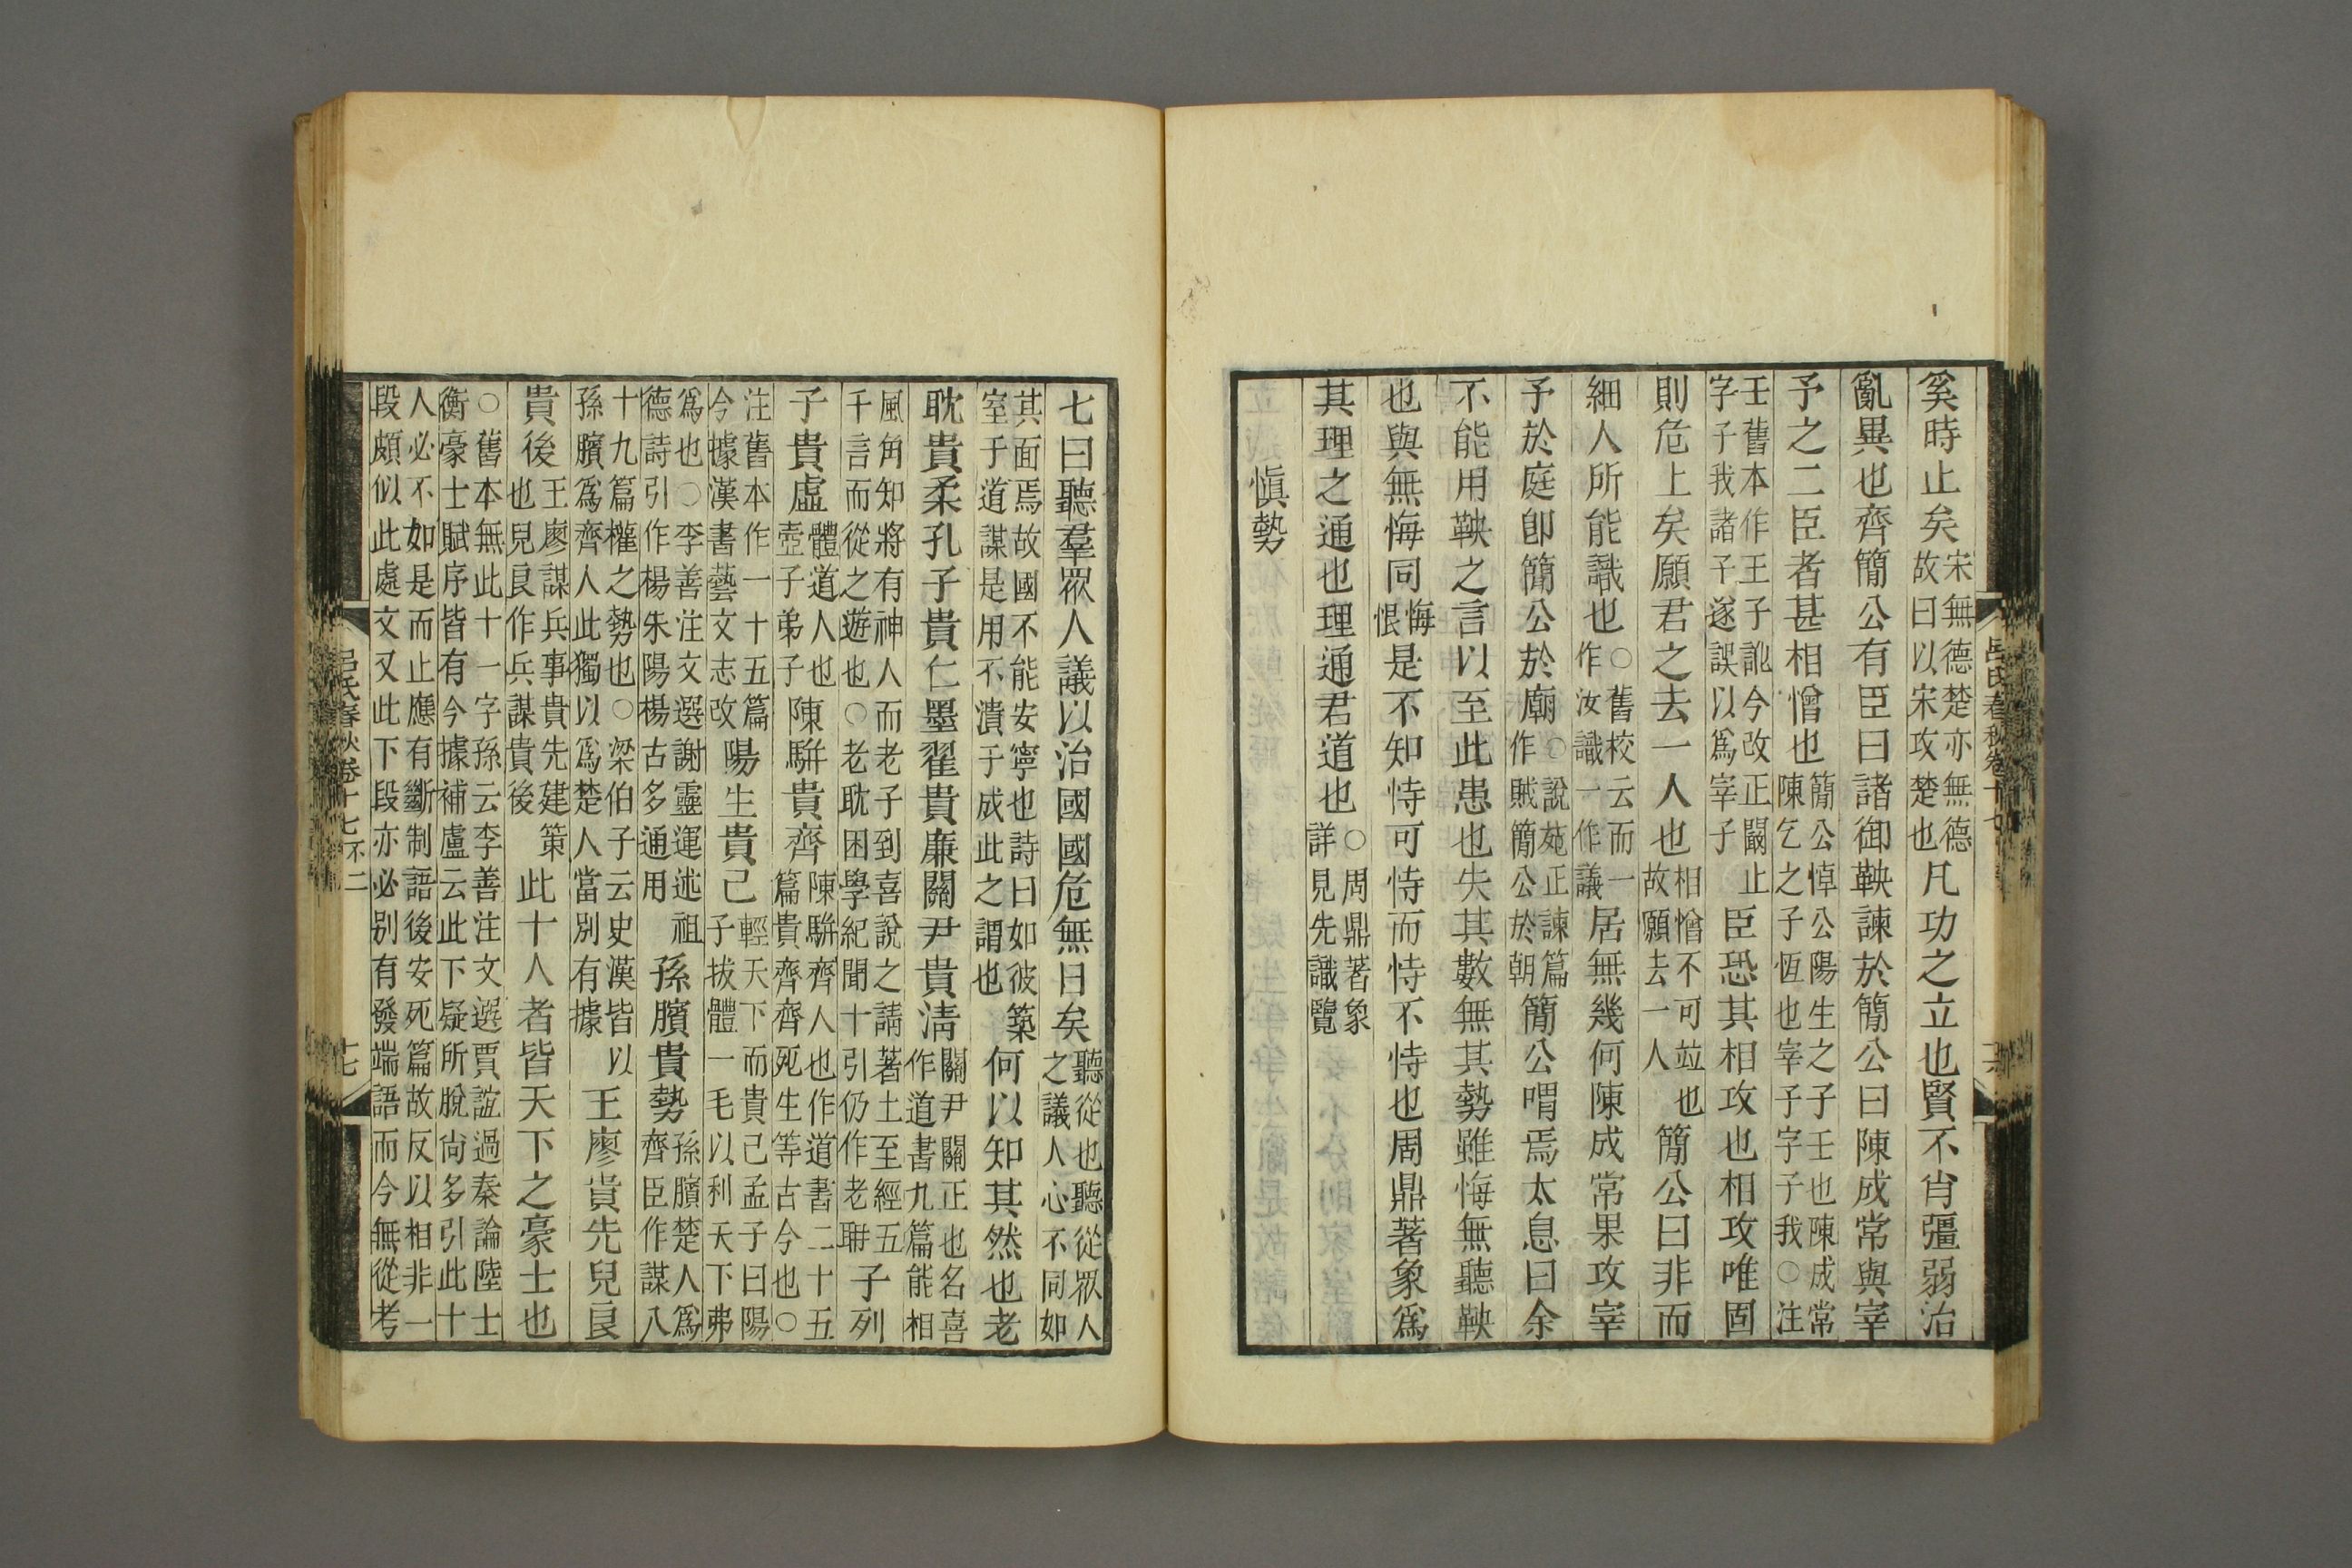 奚時止矣宋無德楚亦無德故曰以宋攻楚也凡功之立也賢不肖彊弱治
亂異也齊簡公有臣曰諸御鞅諫於簡公曰陳成常與宰
予之二臣者甚相憎也簡公悼公陽生之子壬也陳成常陳乞之子恆也宰予字子我○注
壬舊本作王子訛今改正闞止字子我諸子遂誤以爲宰子臣恐其相攻也相攻唯固
則危上矣願君之去一人也相憎不可竝也故願去一人簡公曰非而
細人所能識也○舊校云而一作汝識一作議居無幾何陳成常果攻宰
予於庭卽簡公於廟○說苑正諫篇作賊簡公於朝簡公喟焉太息曰余
不能用鞅之言以至此患也失其數無其勢雖悔無聽鞅
也與無悔同悔恨是不知恃可恃而恃不恃也周鼎著象爲
其理之通也理通君道也○周鼎著象詳見先識覽
愼勢
七曰聽羣眾人議以治國國危無日矣聽從也聽從眾人之議人心不同如
其面焉故國不能安寧也詩曰如彼築室于道謀是用不潰于成此之謂也何以知其然也老
耽貴柔孔子貴仁墨翟貴廉關尹貴淸關尹關正也名喜作道書九篇能相
風角知將有神人而老子到喜說之請著上至經五千言而從之遊也○老耽困學紀聞十引仍作老聃子列
子貴虛體道人也壺子弟子陳駢貴齊陳駢齊人也作道書二十五篇貴齊齊死生等古今也○
注舊本作一十五篇今據漢書藝文志改陽生貴己輕天下而貴己孟子曰陽子拔體一毛以利天下弗
爲也○李善注文選謝靈運述祖德詩引作楊朱陽楊古多通用孫臏貴勢孫臏楚人爲齊臣作謀八
十九篇權之勢也○梁伯子云史漢皆以孫臏爲齊人此獨以爲楚人當別有據王廖貴先兒良
貴後王廖謀兵事貴先建策也兒良作兵謀貴後此十人者皆天下之豪士也
○舊本無此十一字孫云李善注文選賈誼過秦論陸士衡豪士賦序皆有今據補盧云此下疑所脫尙多引此十
人必不如是而止應有斷制語後安死篇故反以相非一段頗似此處文又此下段亦必別有發端語而今無從考
呂氏春秋卷十七